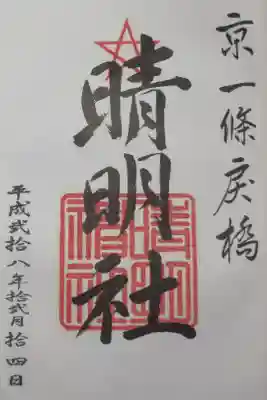 京一條戻橋
晴明社
平成弐拾八年拾弐月拾四日